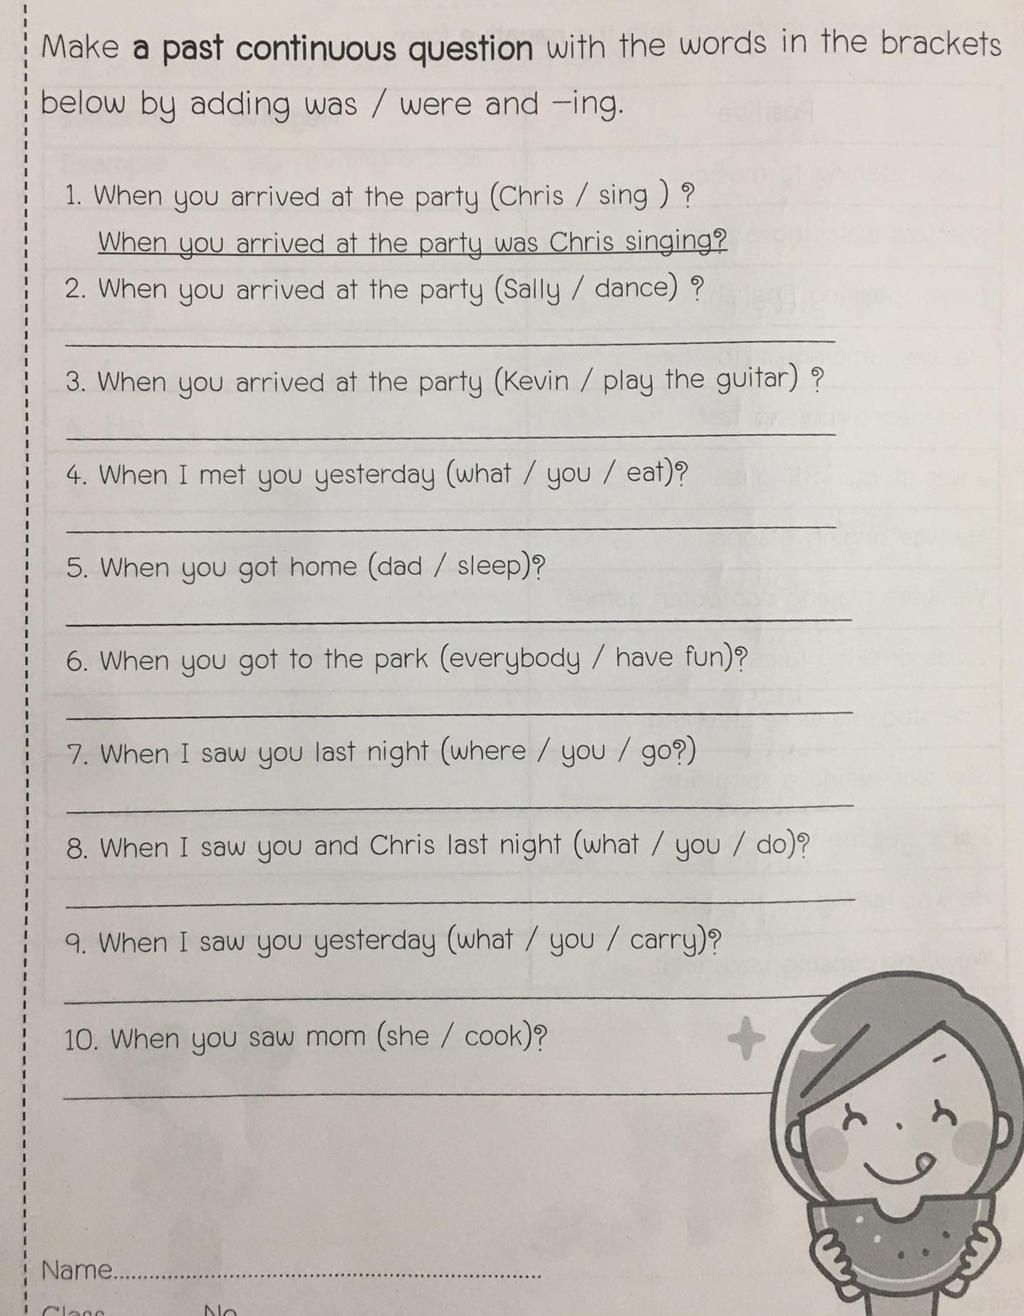 Make a past continuous question with the words in the brackets
below by adding was / were and –ing.
1. When you arrived at the party (Chris / sing ) ?
When you arrived at the party was Chris singing?
2. When you arrived at the party (Sally / dance) ?
3. When you arrived at the party (Kevin / play the guitar) ?
4. When I met you yesterday (what / you / eat)?
5. When you got home (dad / sleep)?
6. When you got to the park (everybody / have fun)?
7. When I saw you last night (where / you / go?)
8. When I saw you and Chris last night (what / you / do)?
9. When I saw you yesterday (what / you / carry)?
10. When you saw mom (she / cook)?
Name
Class No